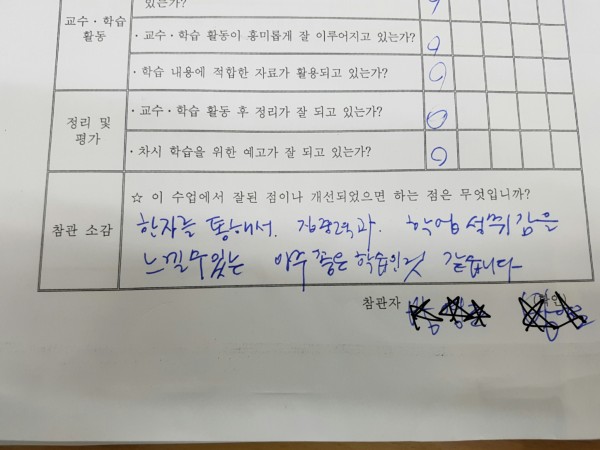 있는가?
교수·학습
활동
· 교수·학습 활동이 흥미롭게 잘 이루어지고 있는가?
· 학습 내용에 적합한 자료가 활용되고 있는가?
정리 및
평가
· 교수·학습 활동 후 정리가 잘 되고 있는가?
· 차시 학습을 위한 예고가 잘 되고 있는가?
참관 소감
☆ 이 수업에서 잘된 점이나 개선되었으면 하는 점은 무엇입니까?
한자를 통해서. 집중력과. 학업 성취감을
느낄수있는 아주 좋은 학습인것 같습니다
참관자